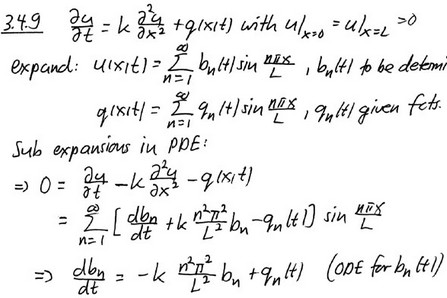 3.4.9 ∂u/∂t = k ∂²u/∂x² + q(x,t) with u|x=0 = u|x=L = 0
expand: u(x,t) = ∑_{n=1}^{∞} bn(t) sin nπx/L , bn(t) to be
q(x,t) = ∑_{n=1}^{∞} qn(t) sin nπx/L , qn(t) given fcts.
Sub expansions in PDE:
⇒ 0 = ∂u/∂t - k ∂²u/∂x² - q(x,t)
= ∑_{n=1}^{∞} [ dbn/dt + k n²π²/L² bn - qn(t) ] sin nπx/L
⇒ dbn/dt = -k n²π²/L² bn + qn(t) (ODE for bn(t))